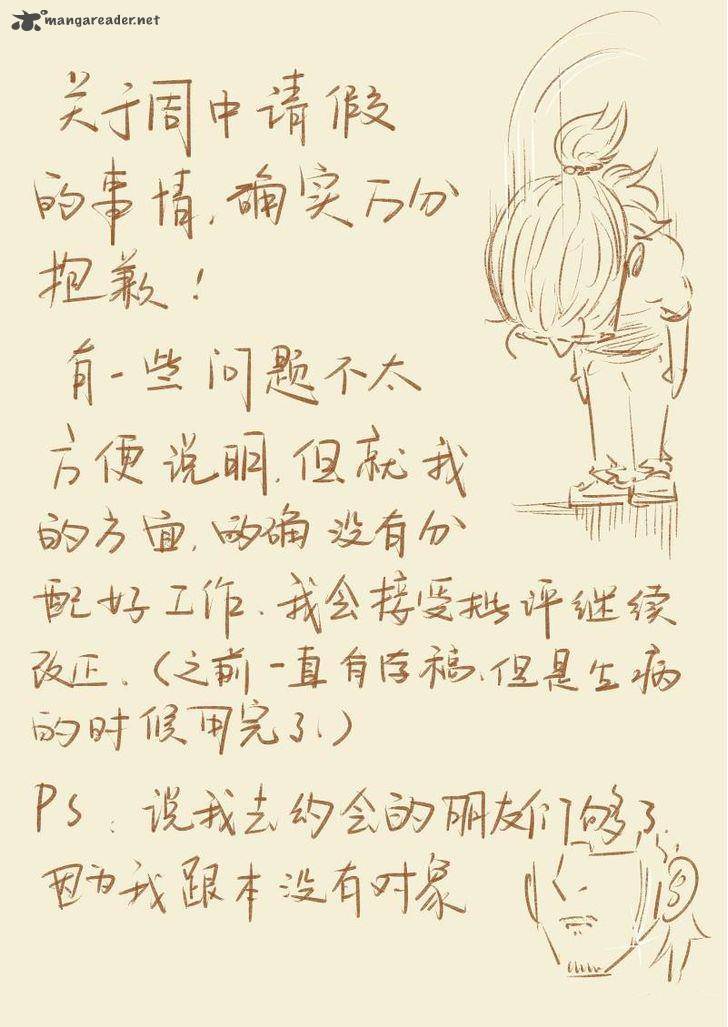 mangareader.net
关于周中请假
的事情,确实万分
抱歉!
有一些问题不太
方便说明,但就我
的方面,的确没有分
配好工作、我会接受批评继续
改正、(之前一直有存稿、但是生病
的时候用完了、)
PS:说我去约会的朋友们够了
因为我跟本没有对象